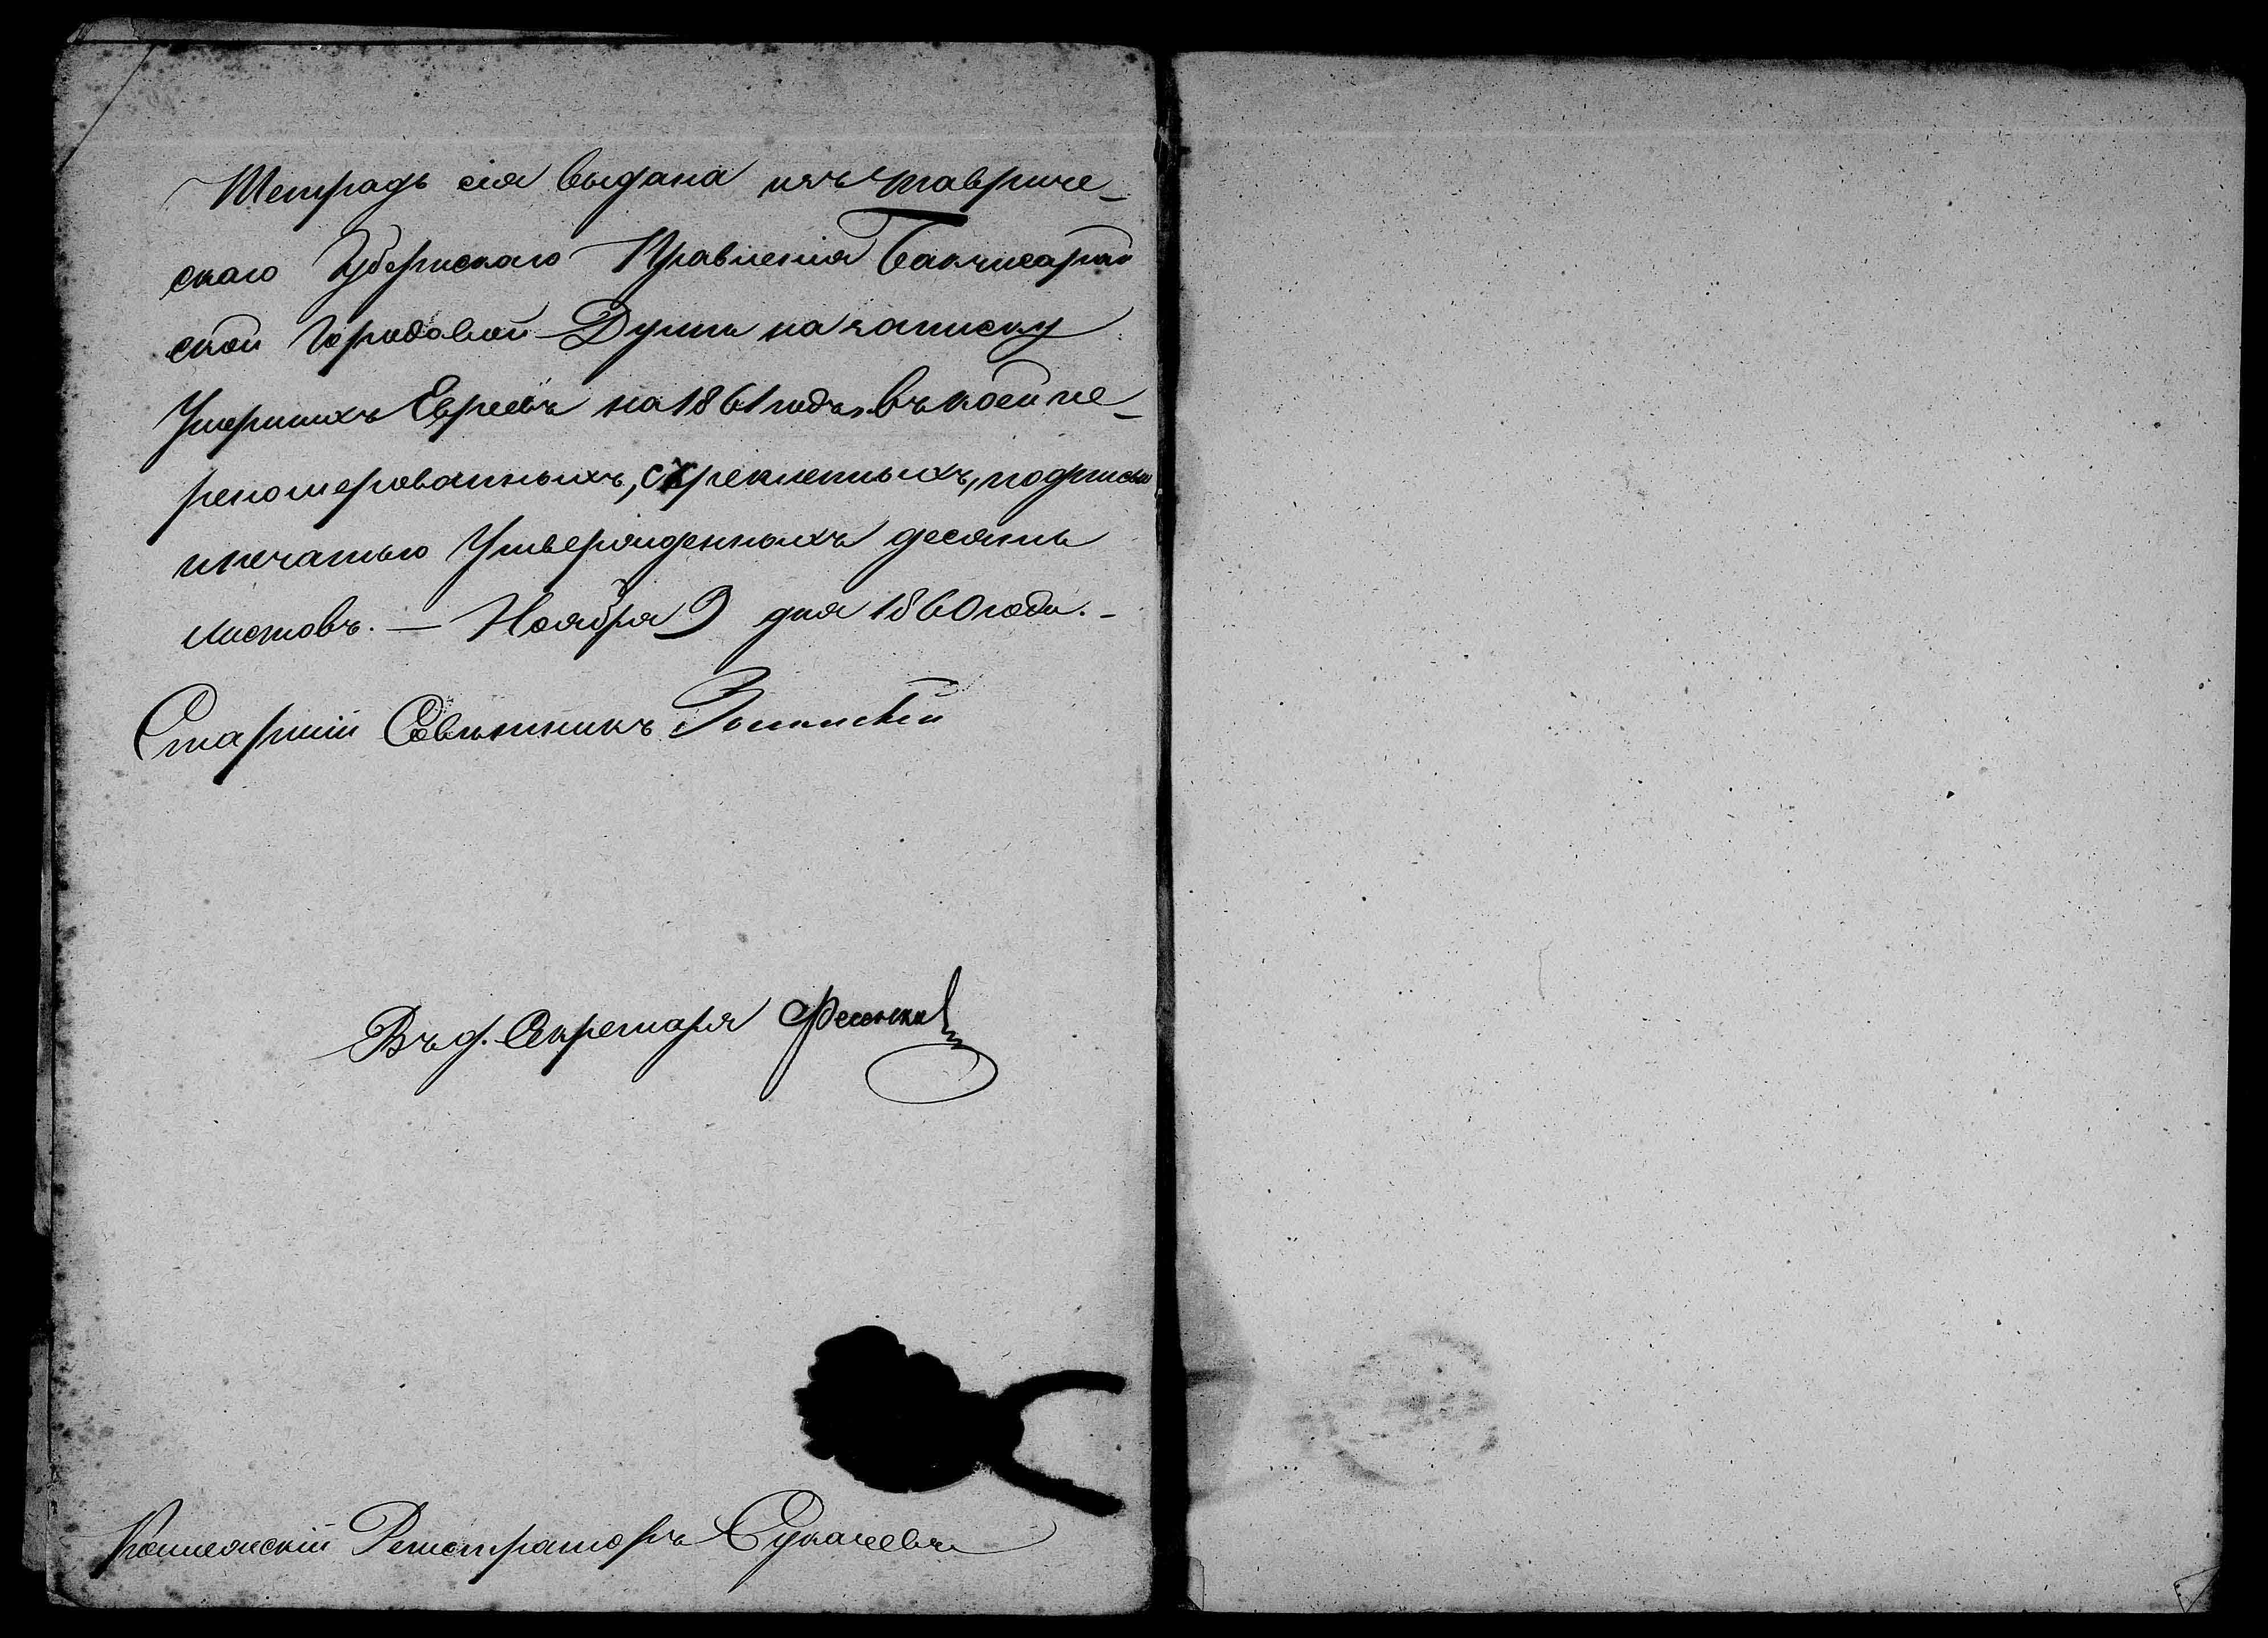 Тетрадь сія выдана изъ Тавриче-
скаго Губернскаго Правленія Бакчисарай
ской Городовой Думы на записку
Умершихъ Евреевъ на 1861 годъ, въ коей пе-
реномерованныхъ, скрепленныхъ, подписью
и печатью Утвержденныхъ десять
листовъ. — Ноября 9 дня 1860 года. -
Старшій Советникъ
Въ д. Секретаря
Коллежскій Регистраторъ Сукачевъ